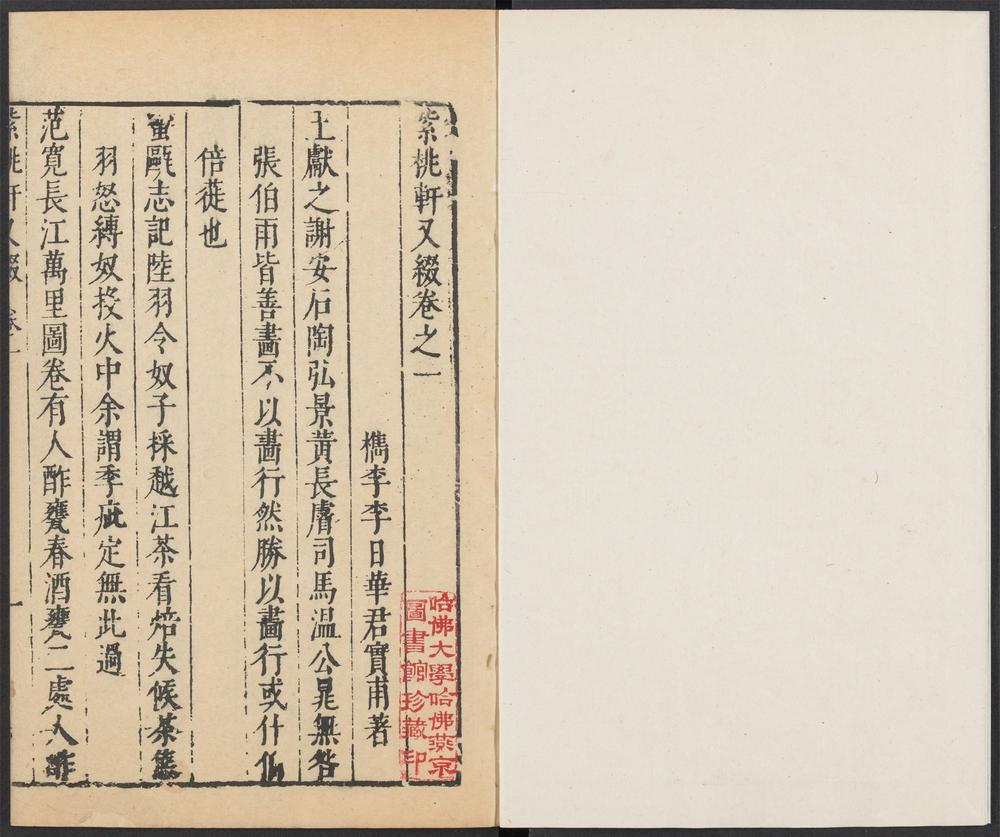 紫桃軒又綴卷之一
檇李李日華君實甫著
王獻之謝安石陶弘景黃長睿司馬溫公晁無咎
張伯雨皆善畵不以畵行然勝以畵行或什伯
倍蓗也
蠻甌志記陸羽令奴子採越江茶看焙失候茶焦
羽怒縛奴投火中余謂季疵定無此過
范寬長江萬里圖卷有人酢甕春酒甕二處人酢
紫桃軒又綴 卷一 一
哈佛大學哈佛燕京
圖書館珍藏印